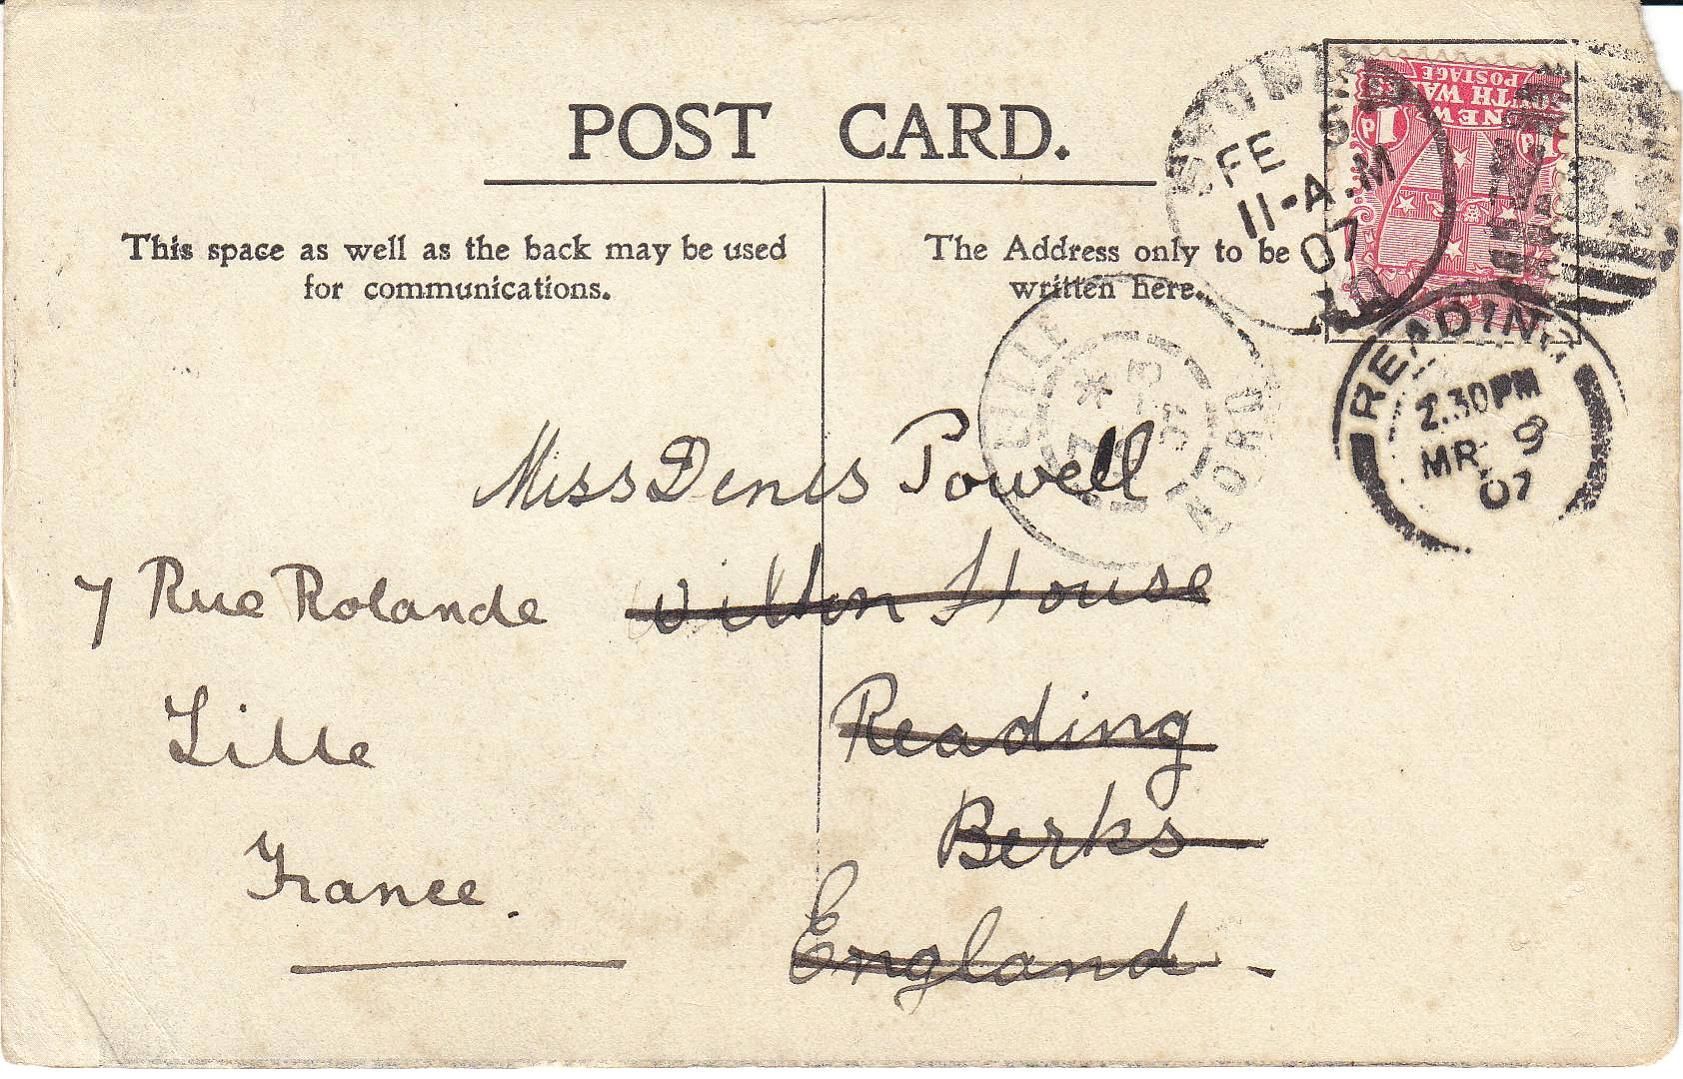 POST CARD.
This space as well as the back may be used
for communications.
The Address only to be
written here.
NEW
SOUTH WA
POSTAGE
1
P
P
SYDNEY
FE 5
11-A.M
07
READING
2.30PM
MR 9
07
LILLE
NORD
Miss Denis Powell
Wilton House
Reading
Berks
England -
7 Rue Rolande
Lille
France.